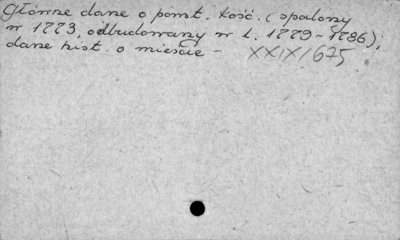 Główne dane o pomst. kość. (spalony
w 1773, odbudowany w l. 1779-1786);
dane hist. o mieście - XXIX/675